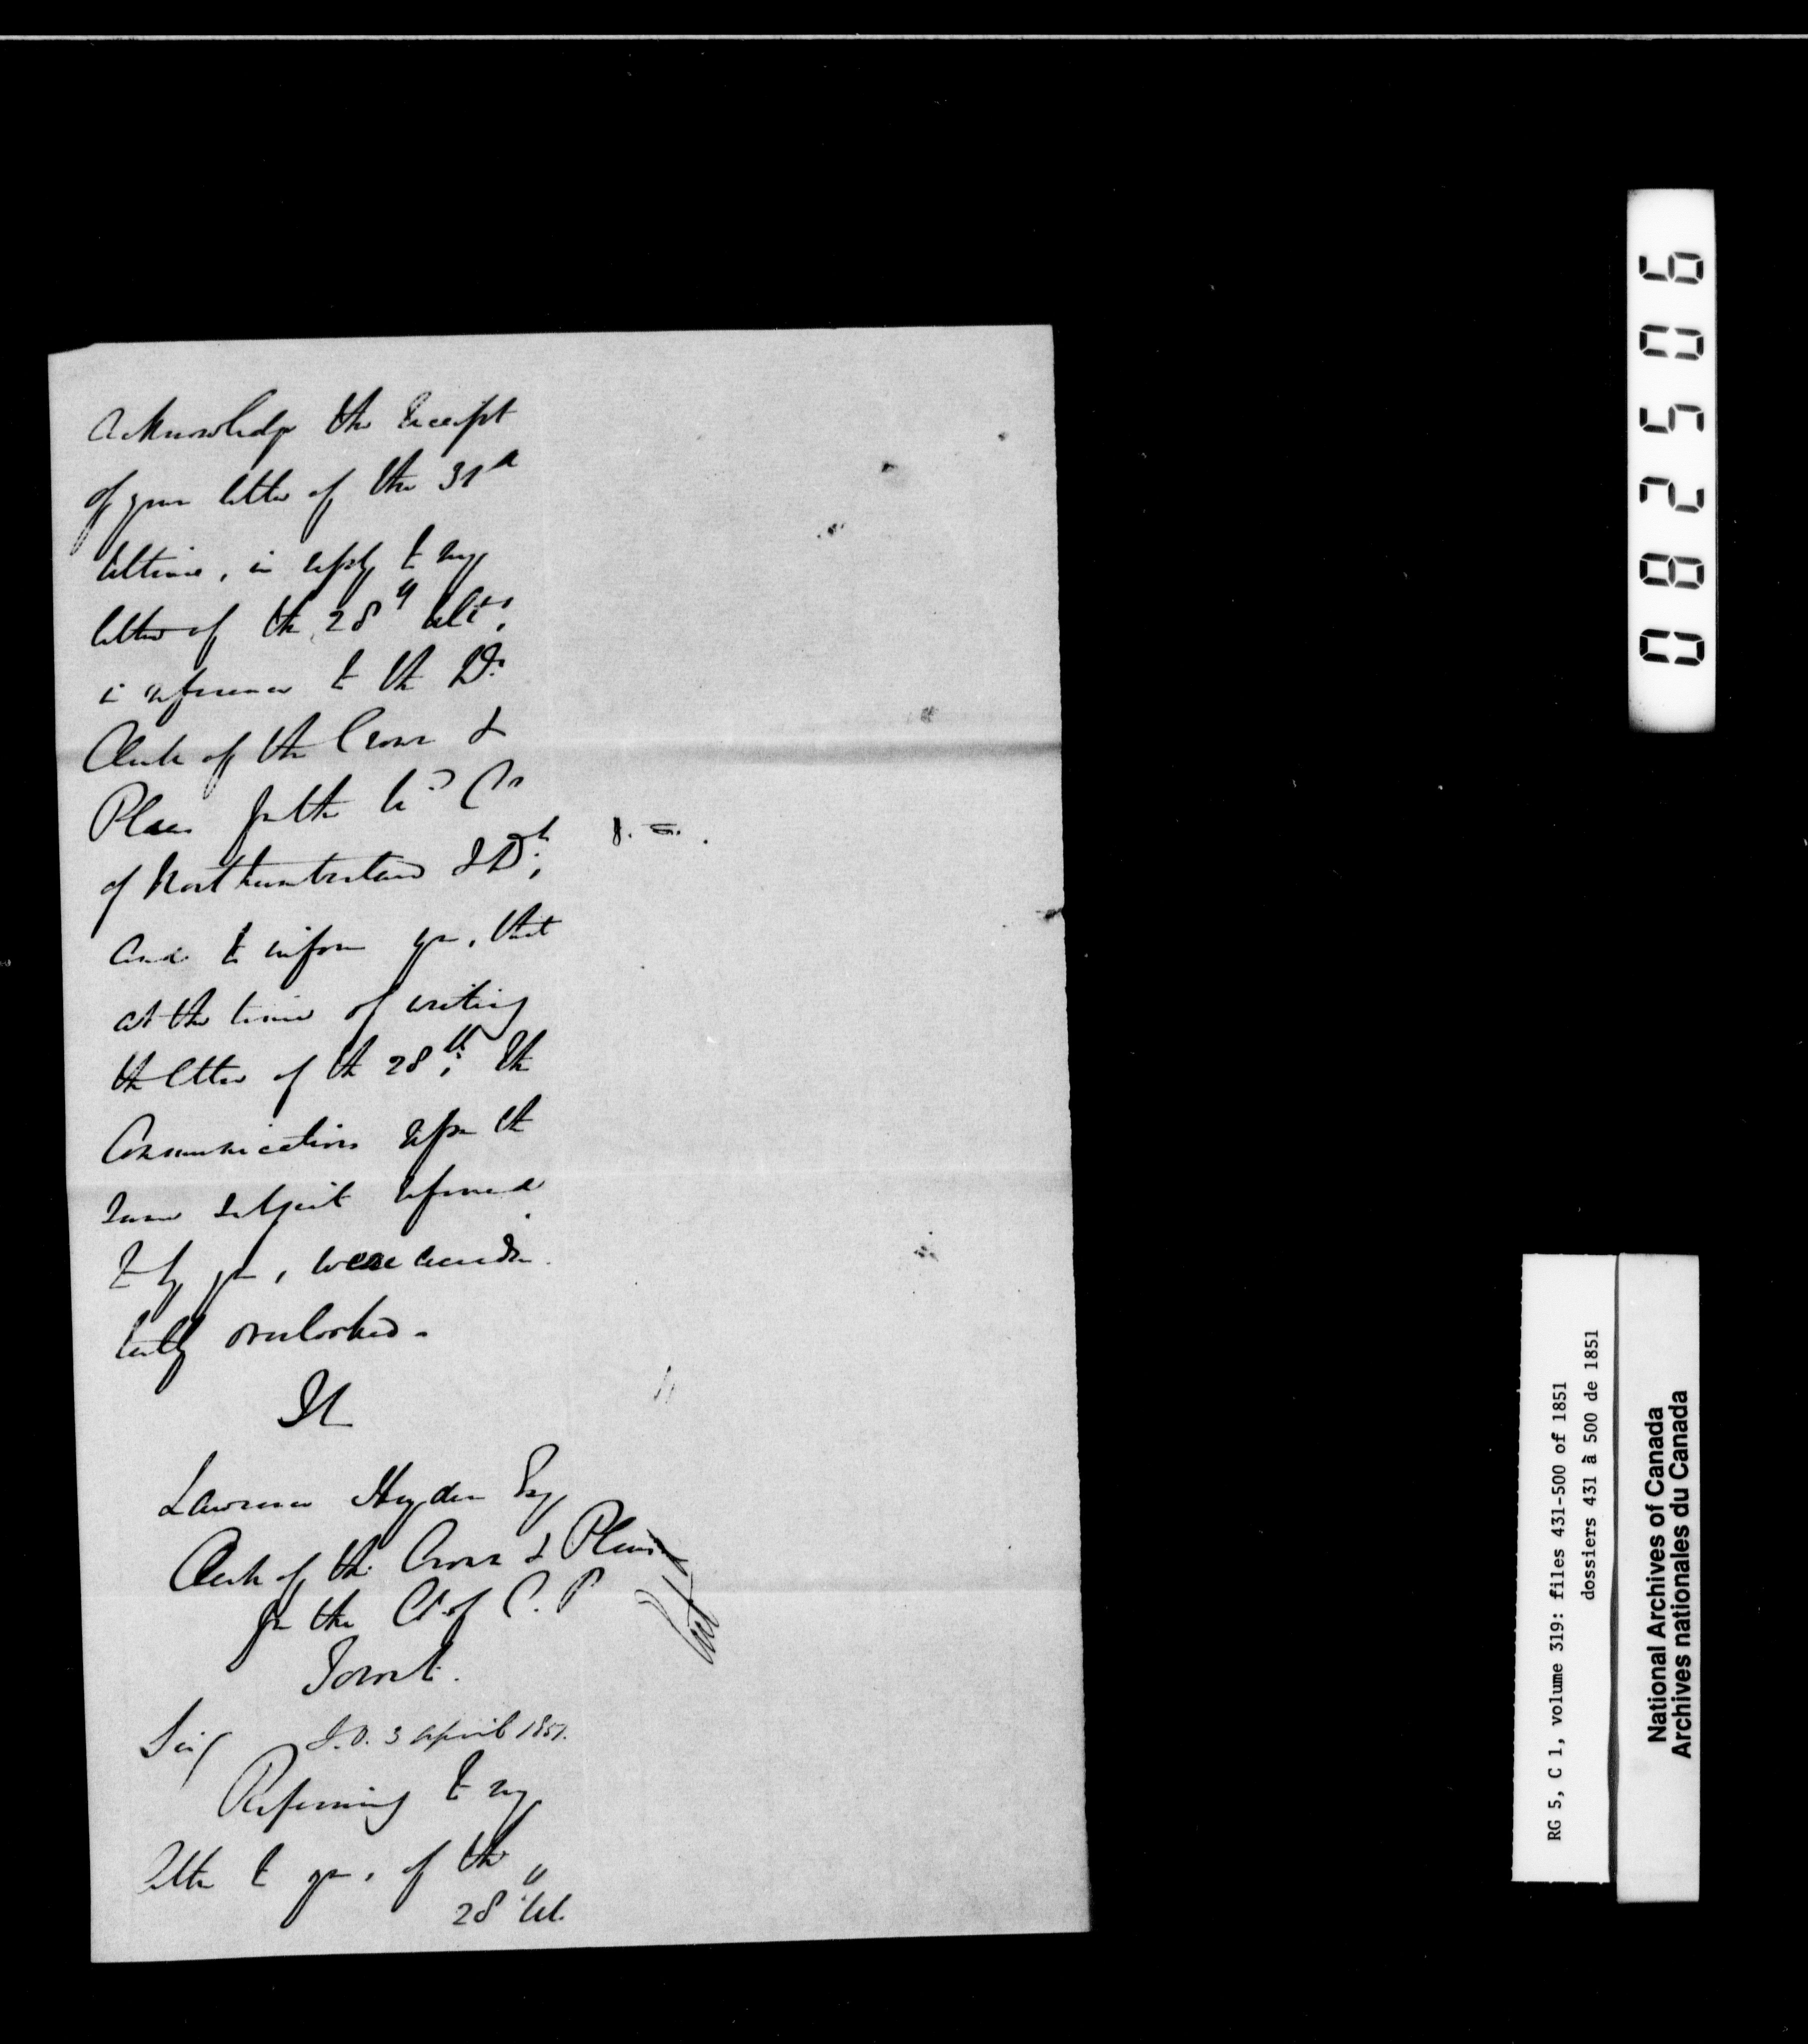 Acknowledge the receipt
of your letter of the 31st
Ultimo, in reply to my
letter of the 28th ulto.
in reference to the Dy.
Clerk of the Crown &
Pleas for the Ud Cos
of Northumberland & Dh.,
and to inform you, that
at the time of writing
the letter of the 28th., the
Communications upon the
same subject referred
to by you, were acciden-
tally overlooked.
I h
Lawrence Heyden Esq
Clerk of the Crown & Pleas
for the Ct. of C. P
Toront.
Sir, S.O. 3 April 1851.
Referring to my
letter to you, of the
28" Ult.
082506
RG 5, C 1, volume 319: files 431-500 of 1851
dossiers 431 à 500 de 1851
National Archives of Canada
Archives nationales du Canada